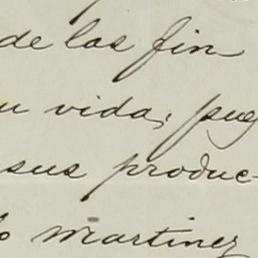 de las fin
u vida, pues
sus produc-
lo Martinez